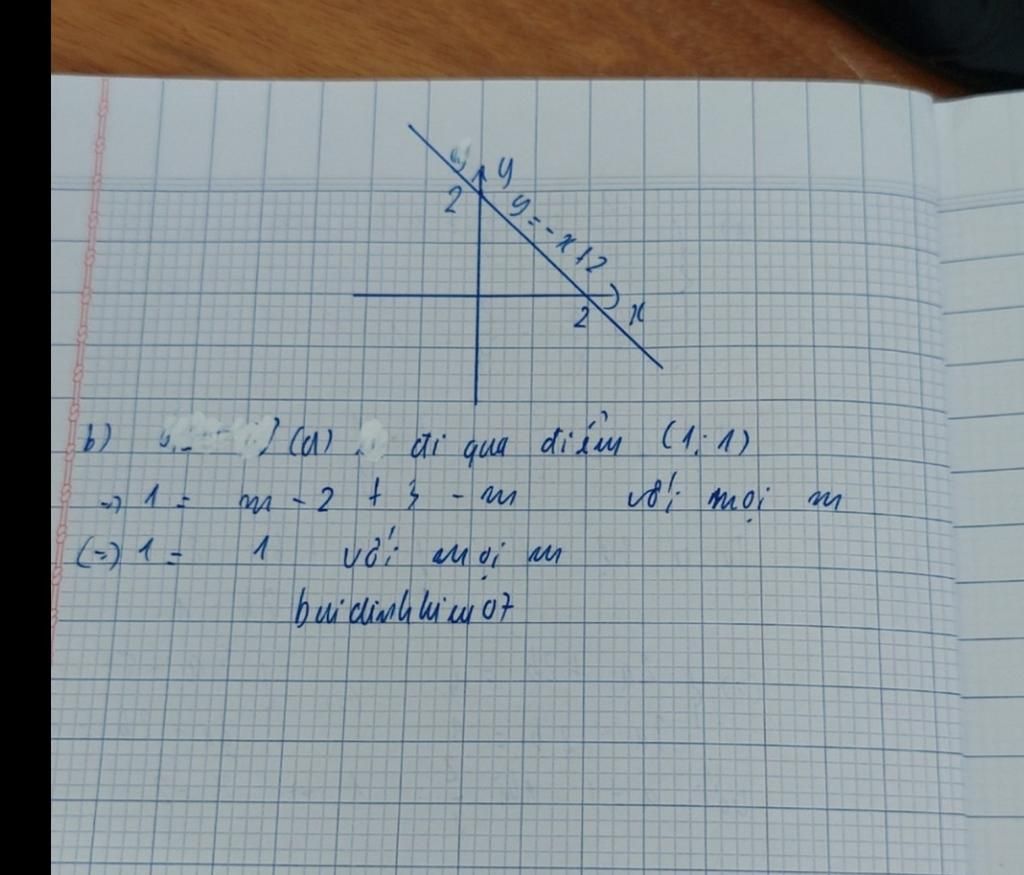 y
2
y = -x + 2
2
x
b) (d) đi qua điểm (1; 1)
=> 1 = m - 2 + 3 - m với mọi m
(=) 1 = 1 với mọi m
buidinhhieu07